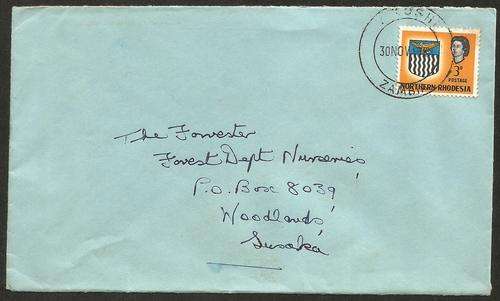 30 NOV
ZAMBIA
3D
POSTAGE
NORTHERN RHODESIA
The Forrester
Forest Dept Nurseries
P.O. Box 8039
Woodlands
Lusaka